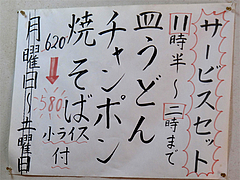 サービスセット
11時半～二時まで
皿うどん
チャンポン
焼そば
620
↓
580
小ライス付
月曜日～土曜日